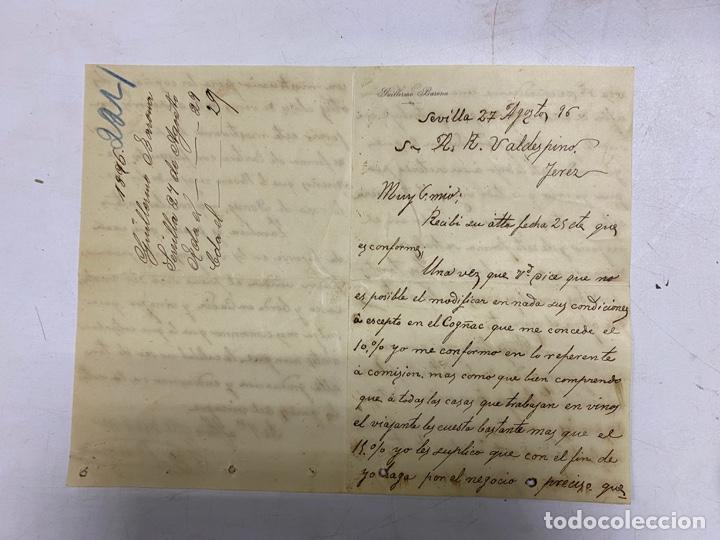 2221
1896.
Guillermo Barona
Sevilla 27 de Agosto
Rda el 28
Cda el 29
Guillermo Barona
Sevilla 27 Agosto 96
Sr. A. R. Valdespino
Jerez
Muy S. mio;
Recibi su atta fecha 25 cte que
es conforme;
Una vez que Vd dice que no
es posible el modificar en nada sus condiciones
á escepto en el Cogñac que me concede el
10,% yo me conformo en lo referente
á comision, mas como que bien comprendo
que á todas las casas que trabajan en vinos
el viajante les cuesta bastante mas que el
15,% yo les suplico que con el fin de
yo haga por el negocio precise que
todocoleccion.net